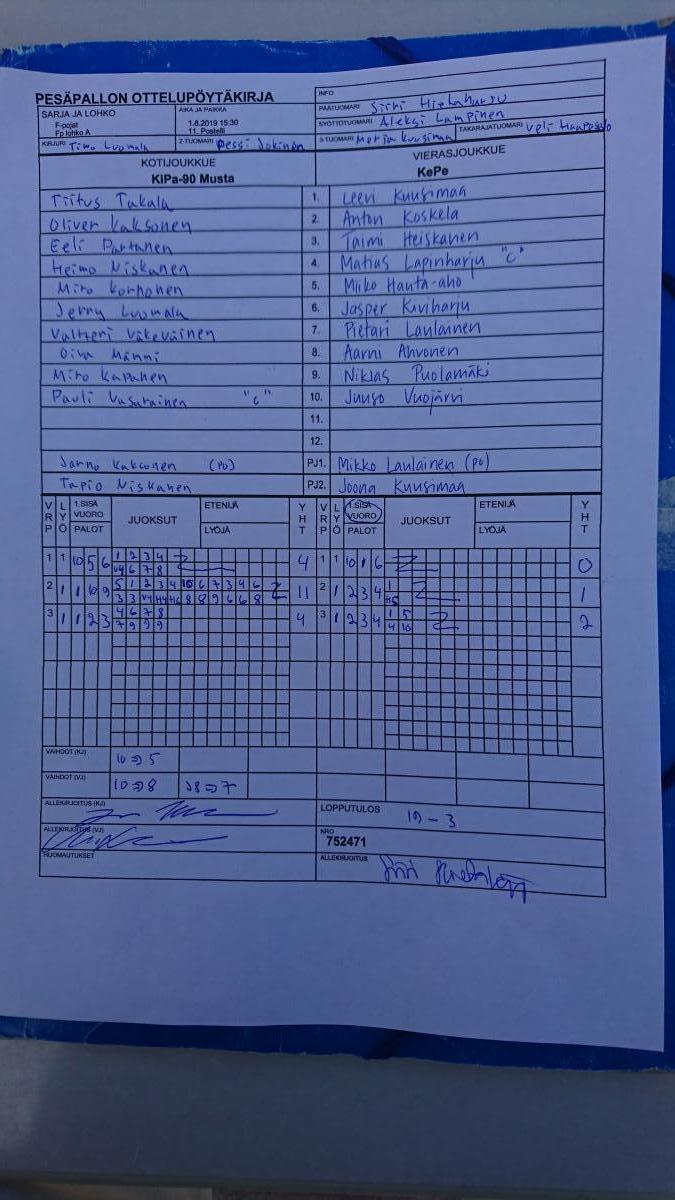 PESÄPALLON OTTELUPÖYTÄKIRJA
INFO
SARJA JA LOHKO
F-pojat
Fp lohko A
AIKA JA PAIKKA
1.8.2019 15:30
11. Postelli
PÄÄTUOMARI
SYÖTTÖTUOMARI Aleksi Lampinen
KIRJURI Timo Luomala
2-TUOMARI Jokinen
3-TUOMARI Merja Kuusimaa
TAKARAJATUOMARI Veli Haapasalo
KOTIJOUKKUE
KiPa-90 Musta
VIERASJOUKKUE
KePe
Tiitus Takala 1. Leevi Kuusimaa
Oliver Kaksonen 2. Anton Koskela
Eeli Partanen 3. Taimi Heiskanen
Heimo Niskanen 4. Matias Lapinharju "C"
Miro Korhonen 5. Miiko Hauta-aho
Jerry Luomala 6. Jasper Kiviharju
Valtteri Väkeväinen 7. Pietari Laulainen
Oiva Männi 8. Aarni Ahvonen
Miro Kapanen 9. Niklas Puolamäki
Pauli Vasarainen "C" 10. Juuso Vuojärvi
11.
12.
Jarno Kaksonen (PO) PJ1. Mikko Laulainen (po)
Tapio Niskanen PJ2. Joona Kuusimaa
VRP LYÖ 1.SISÄ VUORO PALOT JUOKSUT ETENIJÄ LYÖJÄ YHT VRP LYÖ 1.SISÄ VUORO PALOT JUOKSUT ETENIJÄ LYÖJÄ YHT
1 1 10 5 6 1 2 3 4 4 1 1 10 1 6 0
V4 6 7 8
2 1 1 10 9 5 1 2 3 4 10 6 7 3 4 6 11 2 1 2 3 4 1 1
3 3 V4 H4 H6 8 8 9 6 6 8 H5
3 1 1 2 3 4 6 7 8 4 3 1 2 3 4 1 5 2
7 9 9 9 4 10
VAIHDOT (KJ) 10⇒5
VAIHDOT (VJ) 10⇒8 ⇒7
ALLEKIRJOITUS (KJ)
LOPPUTULOS 19 - 3
ALLEKIRJOITUS (VJ)
NRO
752471
HUOMAUTUKSET
ALLEKIRJOITUS